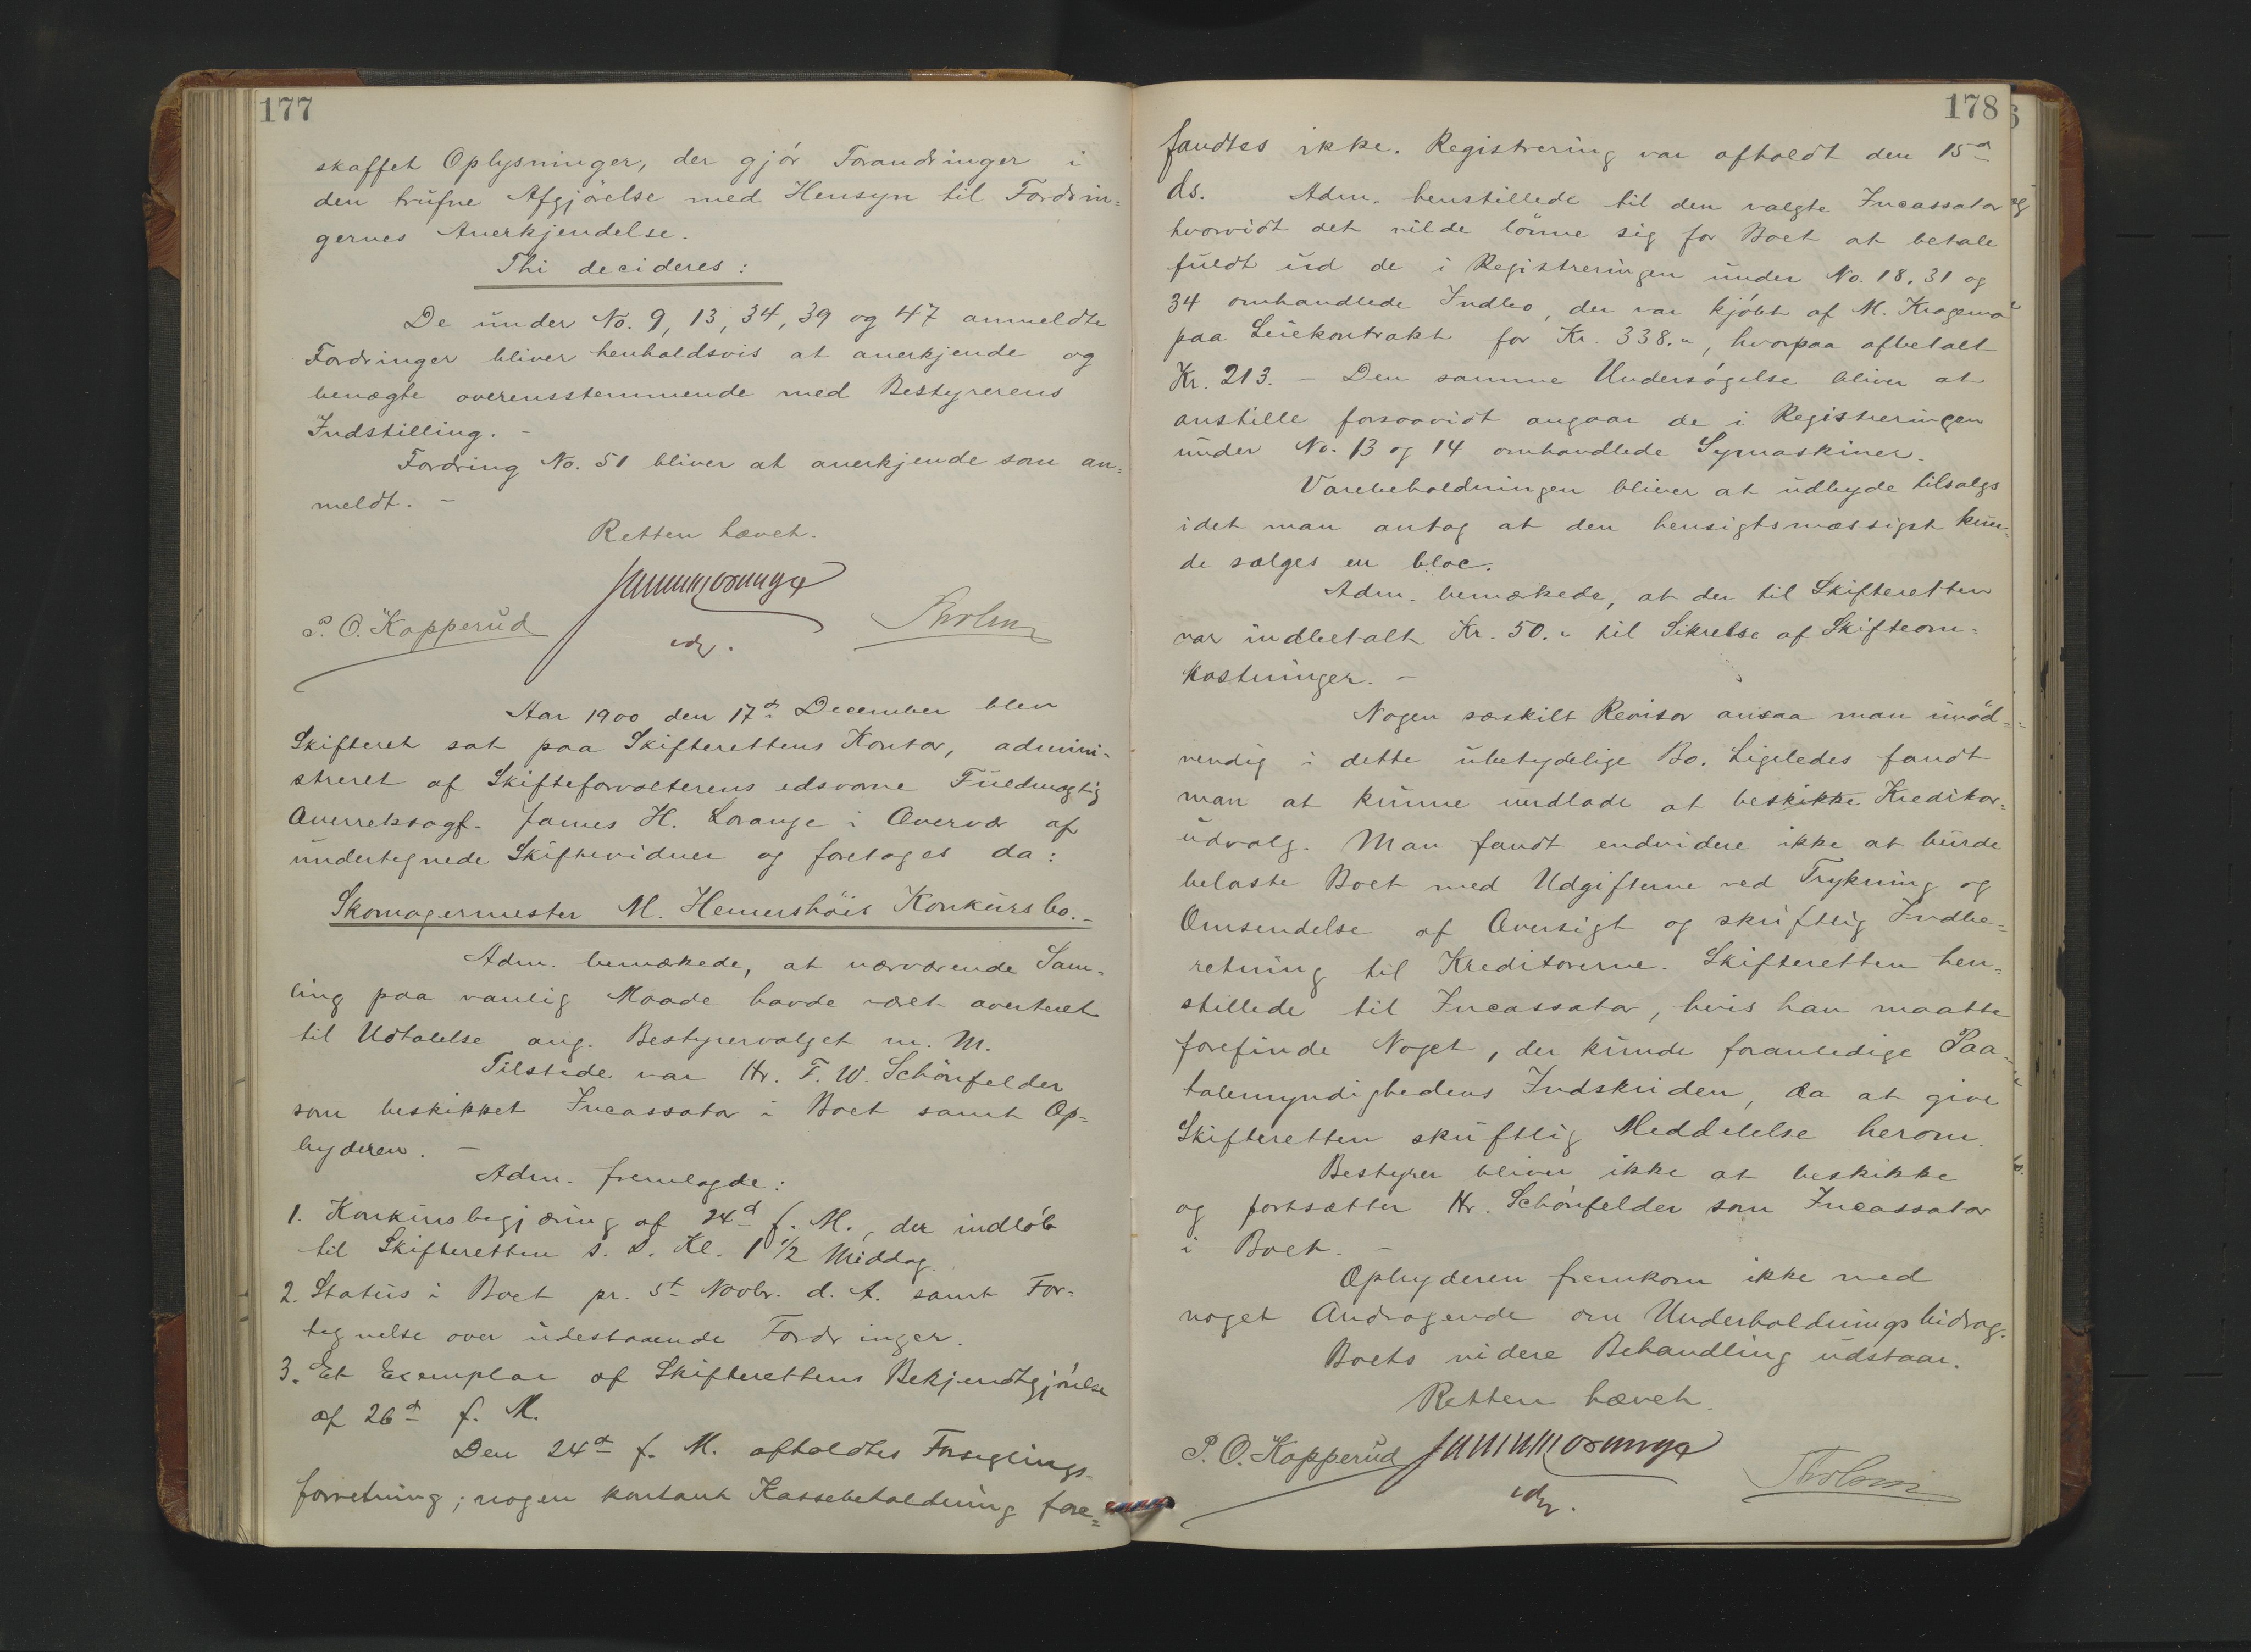 177
skaffet Oplysninger, der gjør Forandringer i
den trufne Afgjørelse med Hensyn til Fordrin=
gernes Anerkjendelse.
Thi decideres:
De under No. 9, 13, 34, 39 og 47 anmeldte
Fordringer bliver henholdsvis at anerkjende og
benægte overensstemmende med Bestyrerens
Indstilling. -
Fordring No. 51 bliver at anerkjende som an=
meldt. -
Retten hævet.
P. O. Kopperud
Aar 1900 den 17d December blev
Skifteret sat paa Skifterettens Kontor, admini=
streret af Skifteforvalterens edsvorne Fuldmægtig
Overretssagf. James H. Lorange i Overvær af
undertegnede Skiftevidner og foretoges da:
Skomagermester M. Hemershöis Konkursbo. -
Adm. bemærkede, at nærværende Sam=
ling paa vanlig Maade havde været averteret
til Udtalelse ang. Bestyrervalget m. M.
Tilstede var Hr. F. W. Schönfelder
som beskikket Incassator i Boet samt Op=
byderen. -
Adm. fremlagde:
1. Konkursbegjæring af 24d f. M., der indløb
til Skifteretten s. D. Kl. 1 1/2 Middag.
2. Status i Boet pr. 5t Novbr. d. A. samt For=
tegnelse over udestaaende Fordringer.
3. Et Exemplar af Skifterettens Bekjendtgjørelse
af 26d f. M.
Den 24d f. M. afholdtes Forseglings-
forretning; nogen kontant Kassebeholdning fore=
178
fandtes ikke. Registrering var afholdt den 15d
ds. Adm. henstillede til den valgte Incassator
hvorvidt det vilde lönne sig for Boet at betale
fuldt ud de i Registreringen under No. 18, 31 og
34 omhandlede Indbo, der var kjøbt af M. Kragemo
paa Leiekontrakt for Kr. 338.", hvorpaa afbetalt
Kr. 213. - Den samme Undersøgelse bliver at
anstille forsaavidt angaar de i Registreringen
under No. 13 og 14 omhandlede Symaskiner.
Varebeholdningen bliver at udbyde tilsalgs
idet man antog at den hensigtsmæssigst kun=
de sælges en bloc.
Adm. bemærkede, at der til Skifteretten
var indbetalt Kr. 50." til Sikrelse af Skifteom=
kostninger. -
Nogen særskilt Revisor ansaa man unød=
vendig i dette ubetydelige Bo. Ligeledes fandt
man at kunne undlade at beskikke Kreditor=
udvalg. Man fandt endvidere ikke at burde
belaste Boet med Udgifterne ved Trykning og
Omsendelse af Oversigt og skriftlig Indbe=
retning til Kreditorerne. Skifteretten hen=
stillede til Incassator, hvis han maatte
forefinde Noget, der kunde foranledige Paa=
talemyndighedens Indskriden, da at give
Skifteretten skriftlig Meddelelse herom.
Bestyrer bliver ikke at beskikke
og fortsætter Hr. Schönfelder som Incassator
i Boet. -
Opbyderen fremkom ikke med
noget Andragende om Underholdningsbidrag.
Boets videre Behandling udstaar.
Retten hævet.
P. O. Kopperud